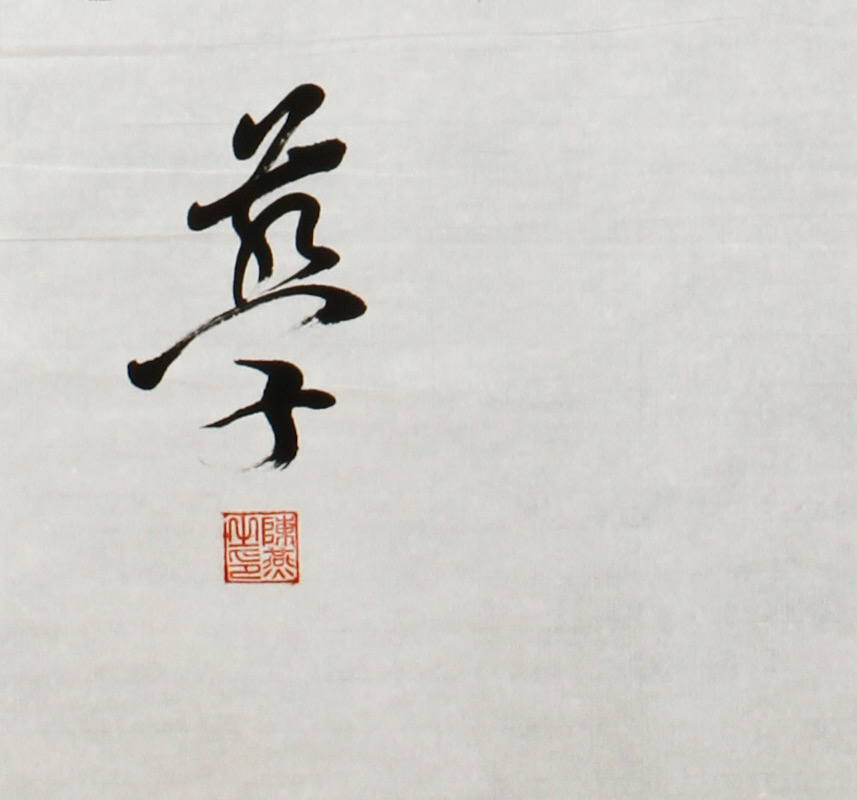 燕子
陳燕
之印